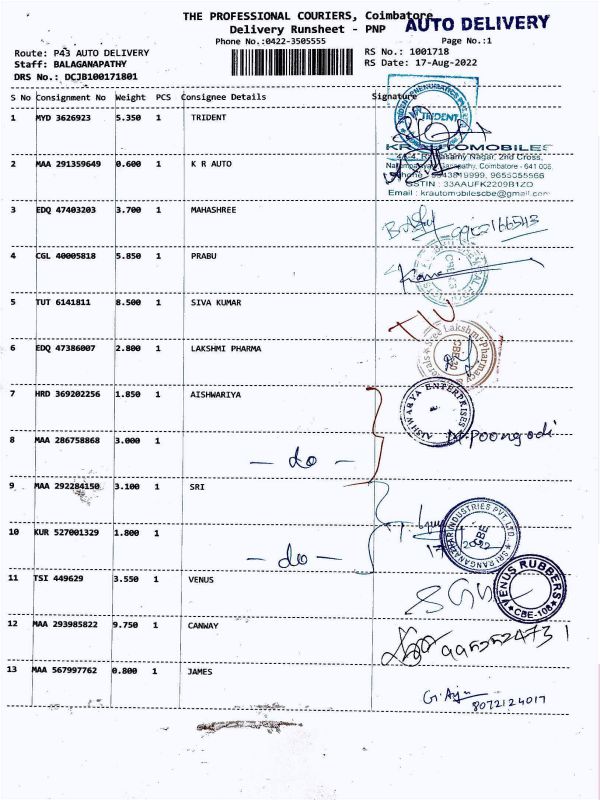 THE PROFESSIONAL COURIERS, Coimbatore
AUTO DELIVERY
Delivery Runsheet - PNP
Phone No.:0422-3505555
Page No.:1
Route: P43 AUTO DELIVERY
RS No.: 1001718
Staff: BALAGANAPATHY
RS Date: 17-Aug-2022
DRS No.: DCJB100171801
S No Consignment No Weight PCS Consignee Details Signature
1 MYD 3626923 5.350 1 TRIDENT
TRIDENT
KR AUTOMOBILES
2 MAA 291359649 0.600 1 K R AUTO
Nagar, 2nd Cross,
Ganapathy, Coimbatore - 641 006.
9843819999, 9655055566
GSTIN : 33AAUFK2209B1ZO
Email : krautomobilescbe@gmail.com
3 EDQ 47403203 3.700 1 MAHASHREE
4 CGL 40005818 5.850 1 PRABU
5 TUT 6141811 8.500 1 SIVA KUMAR
6 EDQ 47386007 2.800 1 LAKSHMI PHARMA
Sree Lakshmi Pharmacy
7 HRD 369202256 1.850 1 AISHWARIYA
AISHWARYA ENTERPRISES
8 MAA 286758868 3.000 1
Poongodi
- do -
9 MAA 292284150 3.100 1 SRI
SRI RANGANATHAR INDUSTRIES PVT. LTD.
CBE
10 KUR 527001329 1.800 1
- do -
11 TSI 449629 3.550 1 VENUS
VENUS RUBBERS
CBE-106
12 MAA 293985822 9.750 1 CANWAY
9952524731
13 MAA 567997762 0.800 1 JAMES
8072124017